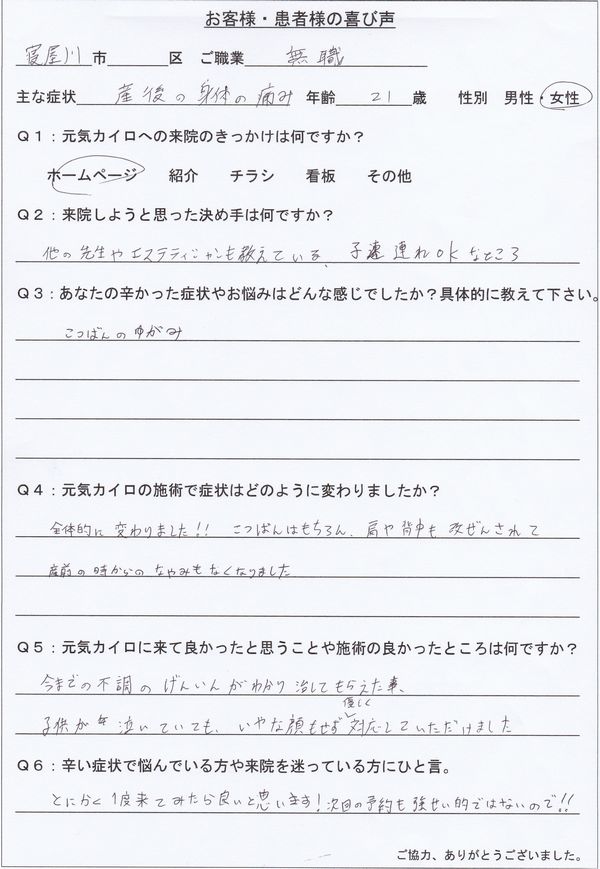 お客様・患者様の喜び声
寝屋川市 区 ご職業 無職
主な症状 産後の身体の痛み 年齢 21 歳 性別 男性・女性
Q1:元気カイロへの来院のきっかけは何ですか?
ホームページ 紹介 チラシ 看板 その他
Q2:来院しようと思った決め手は何ですか?
他の先生やエステティシャンも教えている、子連れOKなところ
Q3:あなたの辛かった症状やお悩みはどんな感じでしたか?具体的に教えて下さい。
こつばんのゆがみ
Q4:元気カイロの施術で症状はどのように変わりましたか?
全体的に変わりました!! こつばんはもちろん、肩や背中も改ぜんされて
産前の時からのなやみもなくなりました
Q5:元気カイロに来て良かったと思うことや施術の良かったところは何ですか?
今までの不調のげんいんがわかり治してもらえた事、
子供が泣いていても、いやな顔もせず優しく対応していただけました
Q6:辛い症状で悩んでいる方や来院を迷っている方にひと言。
とにかく1度来てみたら良いと思います!次回の予約も強せい的ではないので!!
ご協力、ありがとうございました。